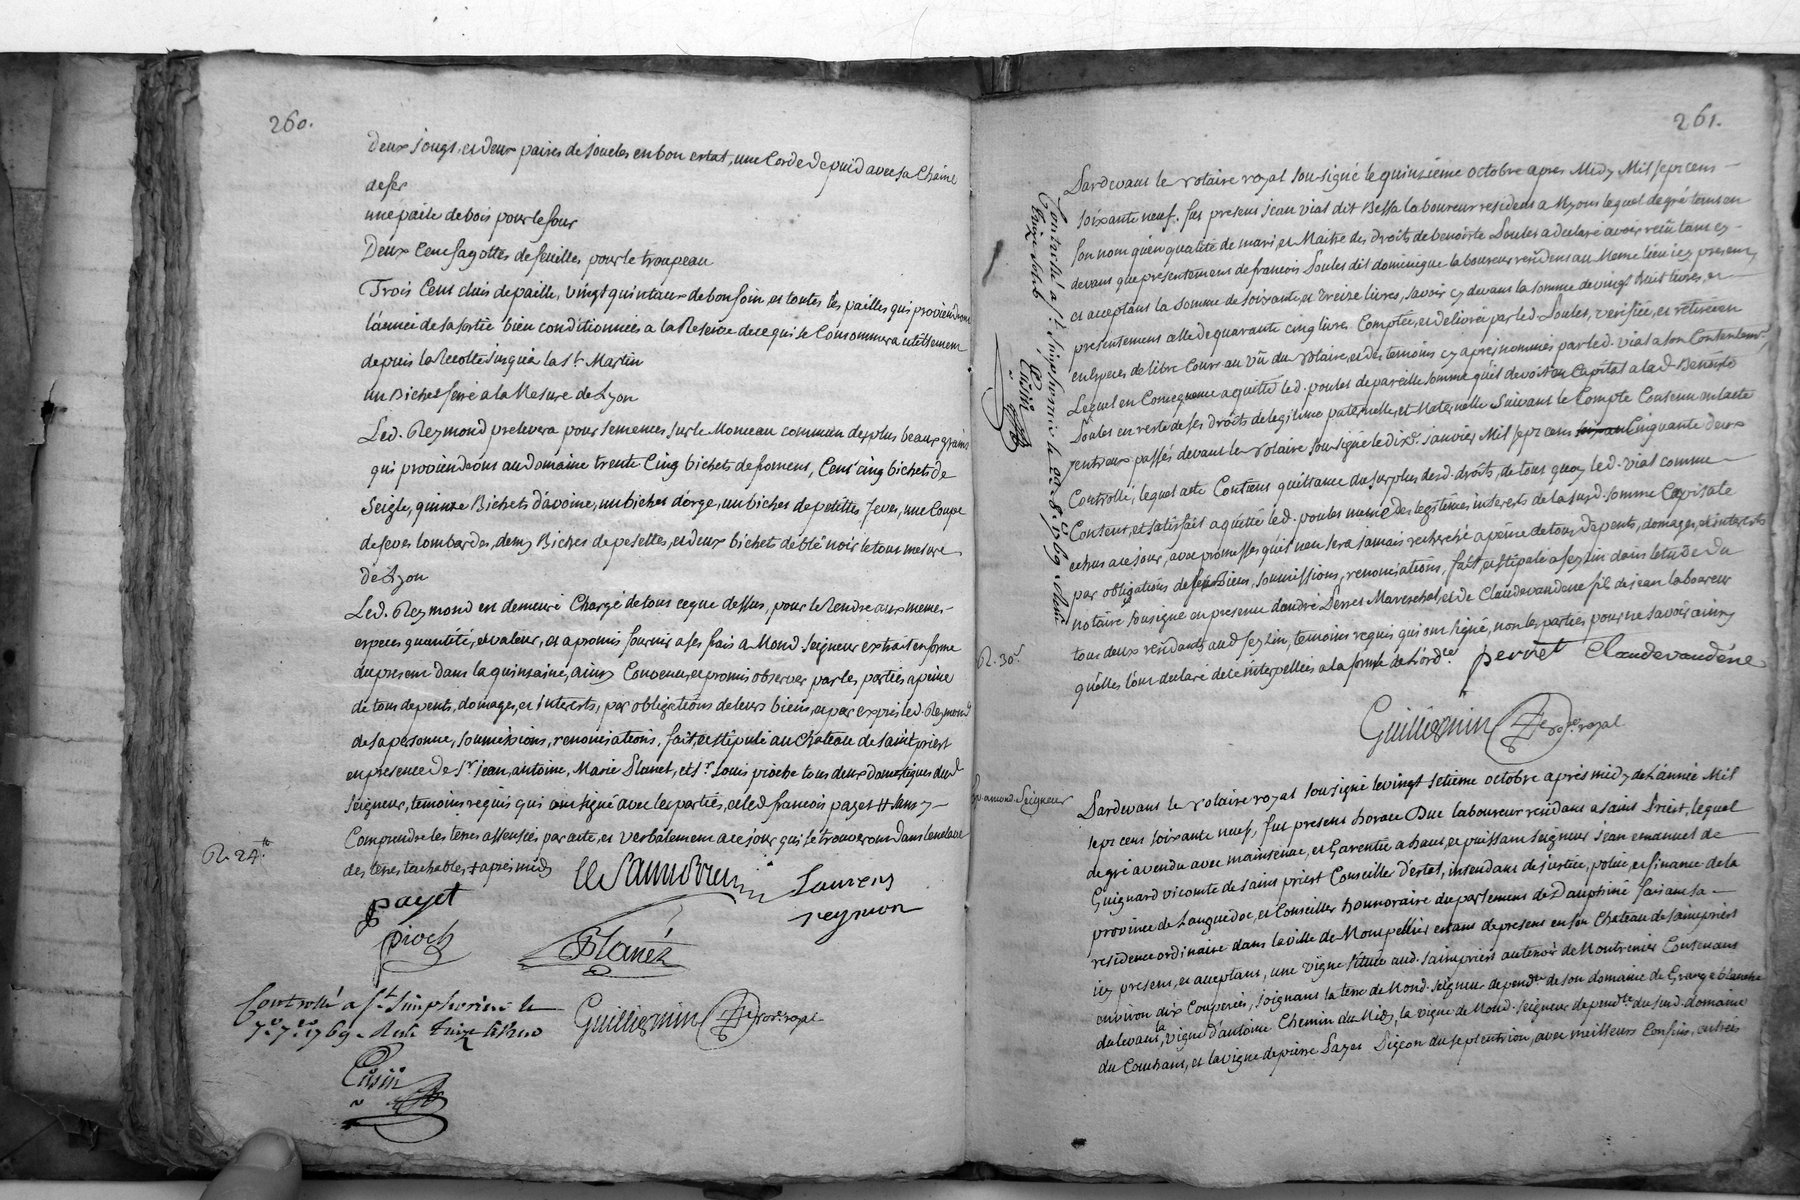 260.
deux jougs, et deux paires de joucles en bon estat, une Corde de puid avec sa Chaine
de fer
une paele de bois pour le four
Deux Cens fagottes de feuilles pour le troupeau
Trois Cens cluis de paille, vingt quintaux de bon foin, et toutes les pailles qui proviendront
l'année de sa sortie bien conditionnées a la Reserve de ce qui se Consommera utilement
depuis la Recolte jusqu'a la St. Martin
un Bichet ferré a la Mesure de Lyon
Led. Reymond prelevera pour semences sur le Monceau commun des plus beaux grains
qui proviendront au domaine trente Cinq bichets de froment, Cent cinq bichets de
Seigle, quinze Bichets d'avoine, un bichet d'orge, un bichet de petittes feves, une Coupe
de feves lombardes, demy Bichet de peselles, et deux bichets de blé noir le tout mesure
de Lyon
Led. Reymond en demeure Chargé de tous ce que dessus, pour le Rendre aux memes
especes quantité, et valeur, et a promis fournir a ses frais a Mond. Seigneur extrait en forme
du present dans la quinzaine, ainsy Convenu, et promis observer par les parties a peine
de tous depents, domages, et interests, par obligations de leurs biens, et par exprès led. Reymond
de sa personne, soumissions, renonciations, fait, et stipulé au Chateau de saint priest
en presence de Sr. jean, antoine, Marie Planet, et Sr. Louis pioche tous deux domestiques dud.
Seigneur, temoins requis qui ont signé avec les parties, et led. francois payet # sans y
Comprendre les terres assensées par acte, et verbalement a ce jour qui se trouveront dans l'enclave
des terres tachables, + après midy
R. 24.
payet
Laurens
reymon
pioch
Planéz
Controllé a St. Simphorien le
7e. 7bre. 1769. Reçu treize sols
Guilliermin Nore. royal
Cusin
261.
Pardevant le Notaire royal sousigné le quinzième octobre apres Midy Mil sept cens
soixante neuf. fut present jean vial dit Bessa laboureur resident a Myons lequel de gré tant en
son nom qu'en qualité de mari, et Maitre des droits de benoiste Poulet a declaré avoir recu tant cy
devant que presentement de francois Poulet dit dominique laboureur resident au Meme lieu icy present,
et acceptant la somme de soixante, et treize livres, savoir cy devant la somme de vingt huit livres, et
presentement celle de quarante cinq livres Comptée, et delivrée par led. Poulet, verifiée, et retirée en
especes de libre Cours au vû du Notaire, et des temoins cy après nommés par led. vial a son Contentemt.
Lequel en Conséquence a quitté led. poulet de pareille somme qu'il devoit en Capital a lad. Benoiste
Poulet en reste de ses droits de legitime paternelle, et Maternelle suivant le Compte Contenu en l'acte
entr'eux passés devant le Notaire sousigné le dix janvier Mil sept cens cinquante deux
Controllé, lequel acte Contient quittance du surplus desd. droits, de tous quoy led. vial comme
Content, et satisfait a quitté led. poulet meme des legitimes interests de la susd. somme Capitale
echus a ce jour, avec promesses qu'il n'en sera jamais recherché a peine de tous depents, domages, et interests
par obligations de ses Biens, soumissions, renonciations, fait, et stipulé a feyzin dans l'etude du
notaire sousigné en presence d'andré Perret Mareschal, et de Claude vandene fils de jean laboureur
tous deux residants aud. feyzin, temoins requis qui ont signé, non les parties pour ne savoir ainsy
qu'elles l'ont declaré de ce interpellées a la forme de l'ordce.
pervet Claudevandéne
R. 30s.
Guilliermin Nore. royal
Controllé a St. Simphorien le 22. 8bre. 1769. Reçu
treize sols
Cusin
po. amond. Seigneur
Pardevant le Notaire royal sousigné le vingt setième octobre après midy de l'année Mil
sept cens soixante neuf, fut present horace Duc laboureur residant a saint Priest, lequel
de gré a vendu avec maintenue, et Garentie a haut, et puissant seigneur jean emanuel de
Guignard vicomte de saint priest Conseiller d'estat, intendant de justice, police, et finance de la
province de Languedoc, et Conseiller honnoraire du parlement de Dauphiné faisant sa
residence ordinaire dans la ville de Montpellier estant de present en son Chateau de saint priest
icy present, et acceptant, une vigne située aud. saint priest au tenoir de Montrenier Contenant
environ dix Couperées, joignant la terre de Mond. seigneur dependte. de son domaine de Grange blanche
du levant, la vigne d'antoine Chemin du Midy, la vigne de Mond. seigneur dependte. du susd. domaine
du Couchant, et la vigne de pierre Payet Pigeon du septentrion, avec meilleurs Confins, entrées